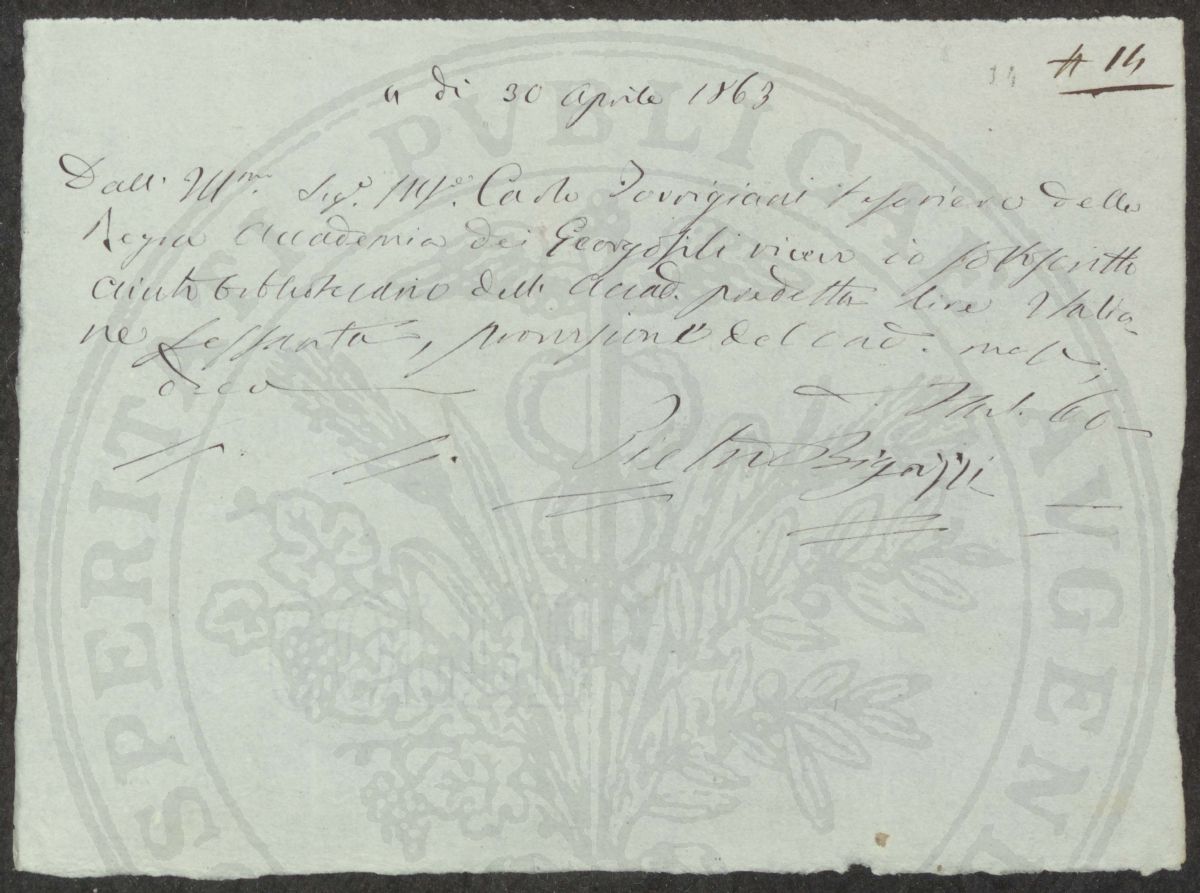 # 14
14
a di 30 Aprile 1863
Dall' Ill.mo Sig.r M.se Carlo Torrigiani tesoriere della
Regia Accademia dei Georgofili ricevo io sottoscritto
aiuto bibliotecario della Accad. predetta lire Italia-
ne sessanta, provisione del cad. mese,
dico Ital. 60-
Pietro Bigazzi
PROSPERITATI PVBLICAE AVGENDAE